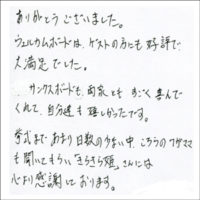 ありがとうございました。
ウェルカムボードは、ゲストの方にも好評で
大満足でした。
サンクスボードも、両家とも すごく喜んで
くれて、自分達も嬉しかったです。
挙式まであまり日数の少ない中、こちらのワガママ
も聞いてもらい "きらきら額"さんには
心より感謝しております。